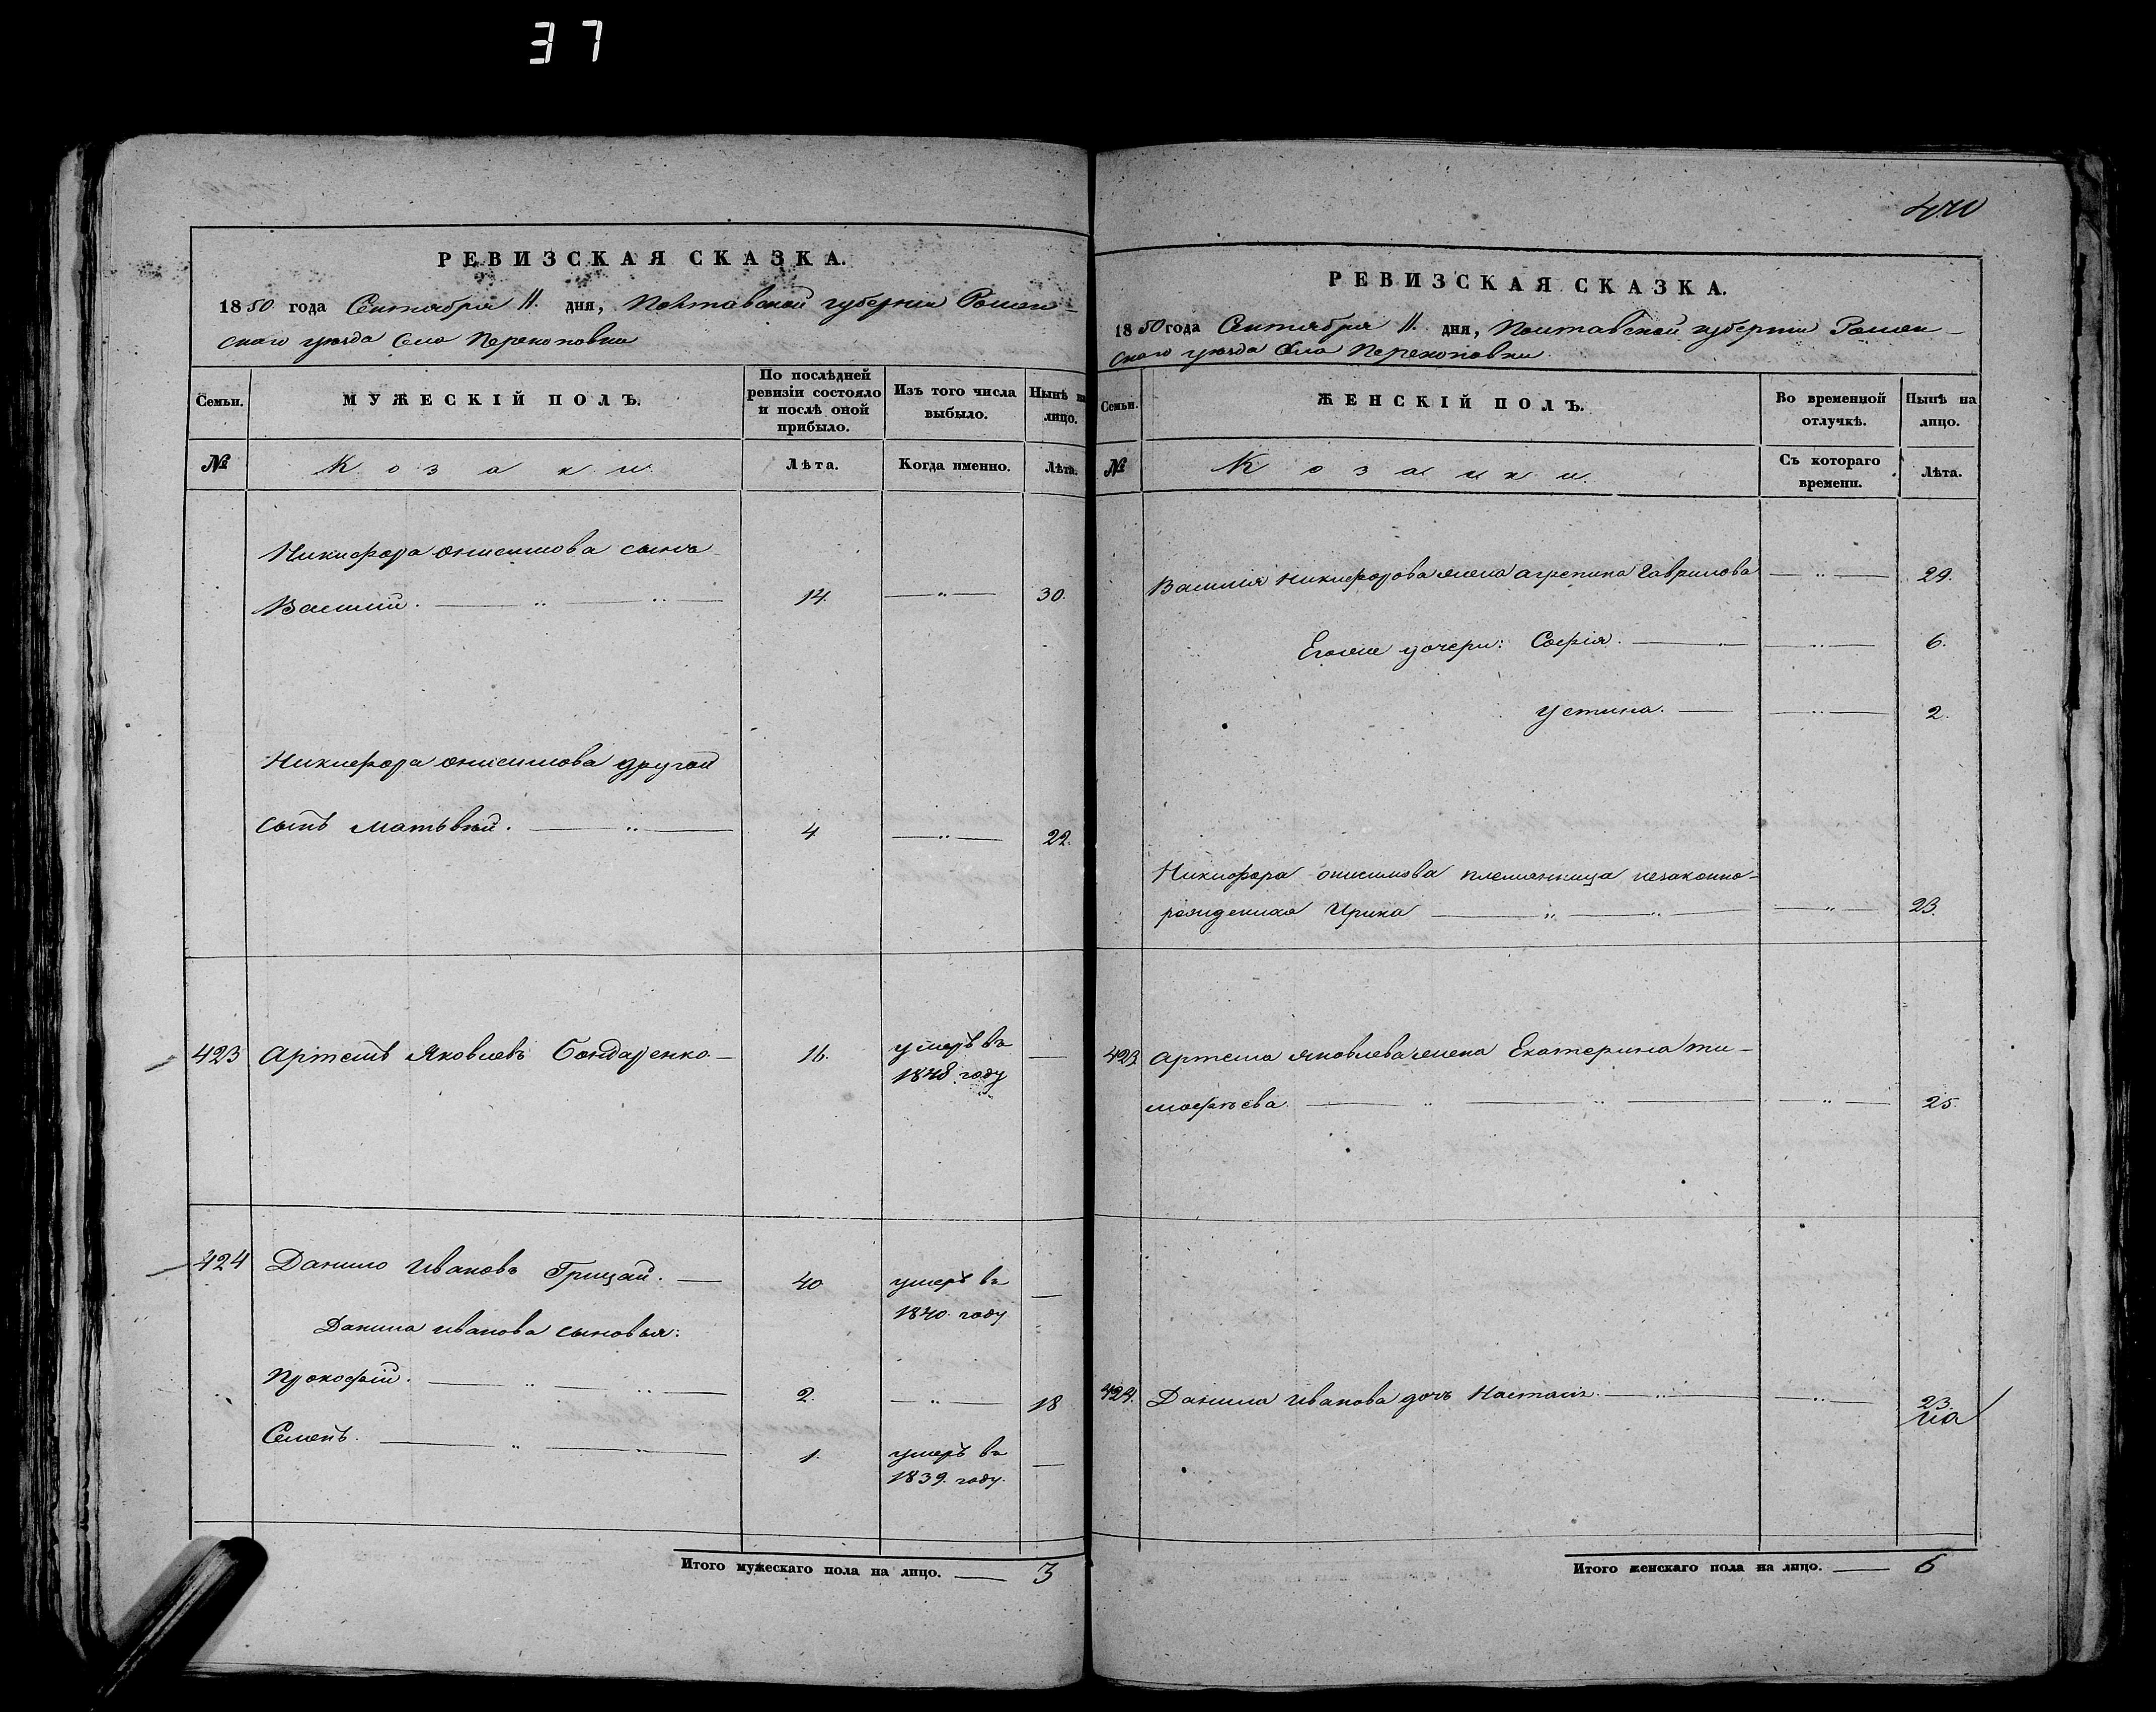 37
РЕВИЗСКАЯ СКАЗКА.
1850 года Сентября 11. дня, Полтавской губернии Ромен-
скаго уезда Села Перекоповки
Семьи.
МУЖЕСКІЙ ПОЛЪ.
По послѣдней ревизіи состояло и послѣ оной прибыло.
Изъ того числа выбыло.
Нынѣ на лицо.
№
Козаки.
Лѣта.
Когда именно.
Лѣта.
Никифора Онисимова сынъ
Василий. 14. 30.
Никифора Онисимова другой
сынъ Матьвѣй. 4 22.
423 Артемъ Яковлевъ Бондаренко. 16. умеръ въ
1848 году
424 Данило Ивановъ Грицай. 40 умеръ въ
1840. году
Данила Иванова сыновья:
Прокофій. 2. 18
Семенъ. 1. умеръ въ
1839. году.
Итого мужескаго пола на лицо. 3
РЕВИЗСКАЯ СКАЗКА.
1850 года Сентября 11. дня, Полтавской губернии Ромен-
скаго уезда Села Перекоповки.
Семьи.
ЖЕНСКІЙ ПОЛЪ.
Во временной отлучкѣ.
Нынѣ на лицо.
№
Козачки.
Съ котораго времени.
Лѣта.
Василія Никифорова жена Агрепина Гаврилова 29.
Егоже дочери: Софія. 6.
Устина. 2.
Никифора Онисимова племянница незаконно-
рожденная Ирина 23.
423 Артема Яковлева жена Екатерина Ти-
мофѣева. 25.
424. Данила Иванова дочь Настасія. 23.
Итого женскаго пола на лицо. 6